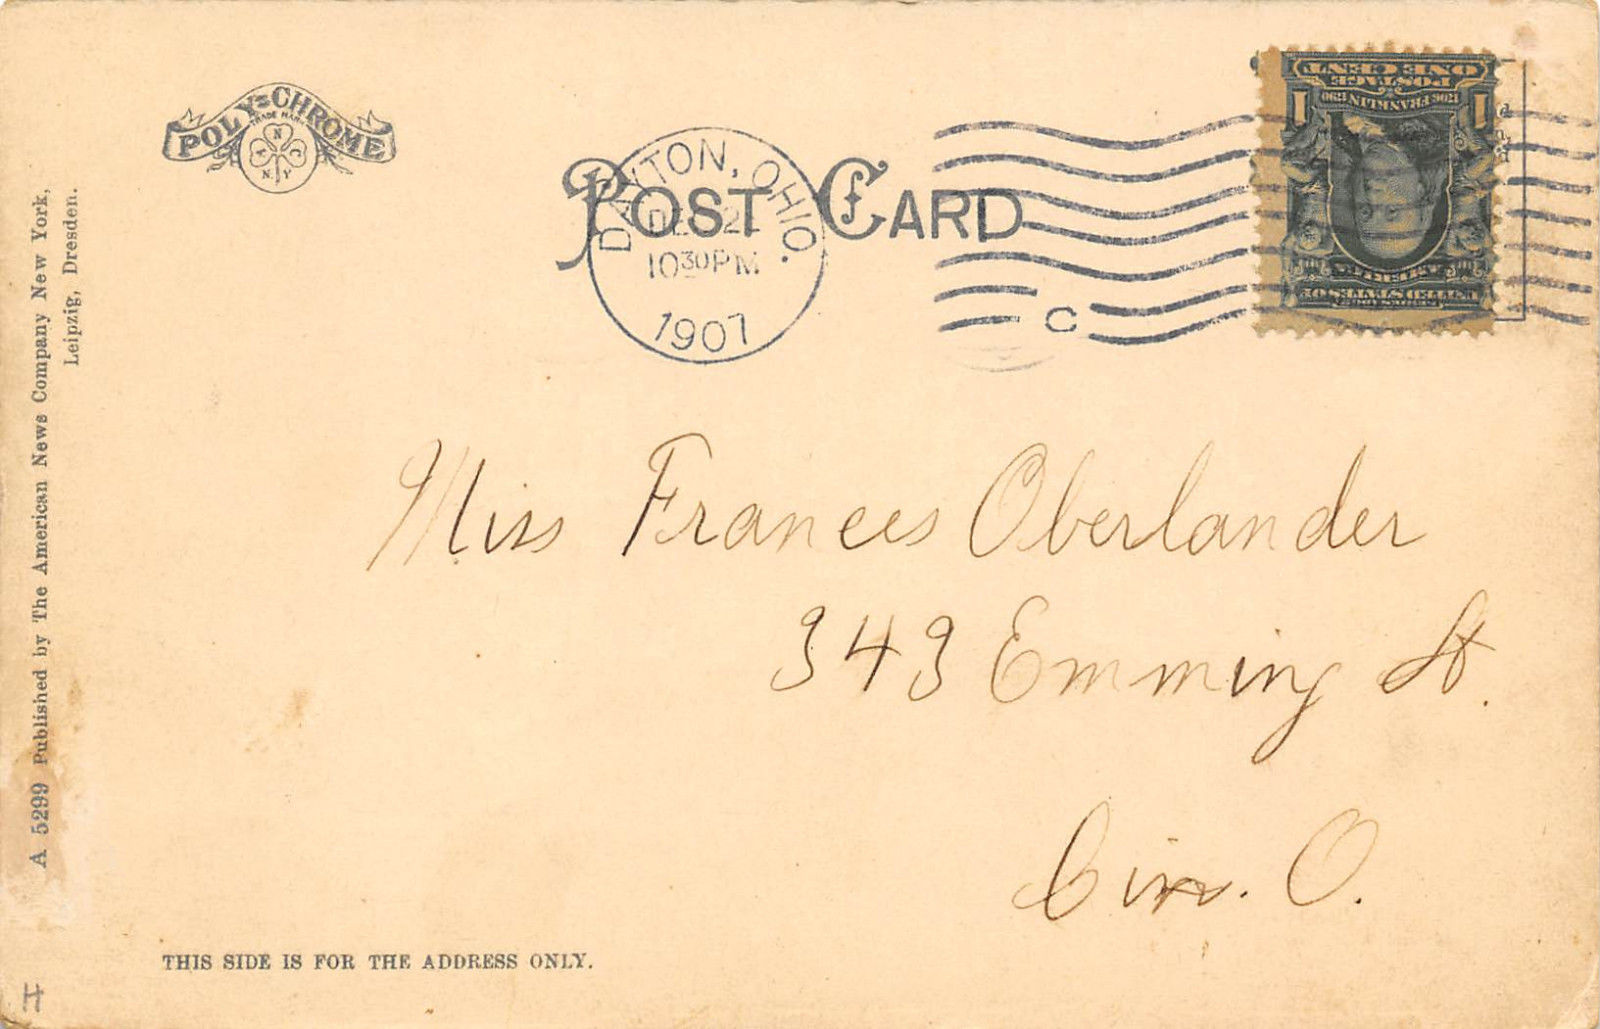 POLY-CHROME
TRADE MARK
A N C
N.Y.
POST CARD
DAYTON, OHIO.
DEC 2
10 30 PM
1907
C
POSTAGE
ONE CENT
1706 FRANKLIN 1790
1 1
SERIES 1902
UNITED STATES OF
AMERICA
Miss Frances Oberlander
343 Emming St.
Cin. O.
A 5299 Published by The American News Company New York,
Leipzig, Dresden.
THIS SIDE IS FOR THE ADDRESS ONLY.
H